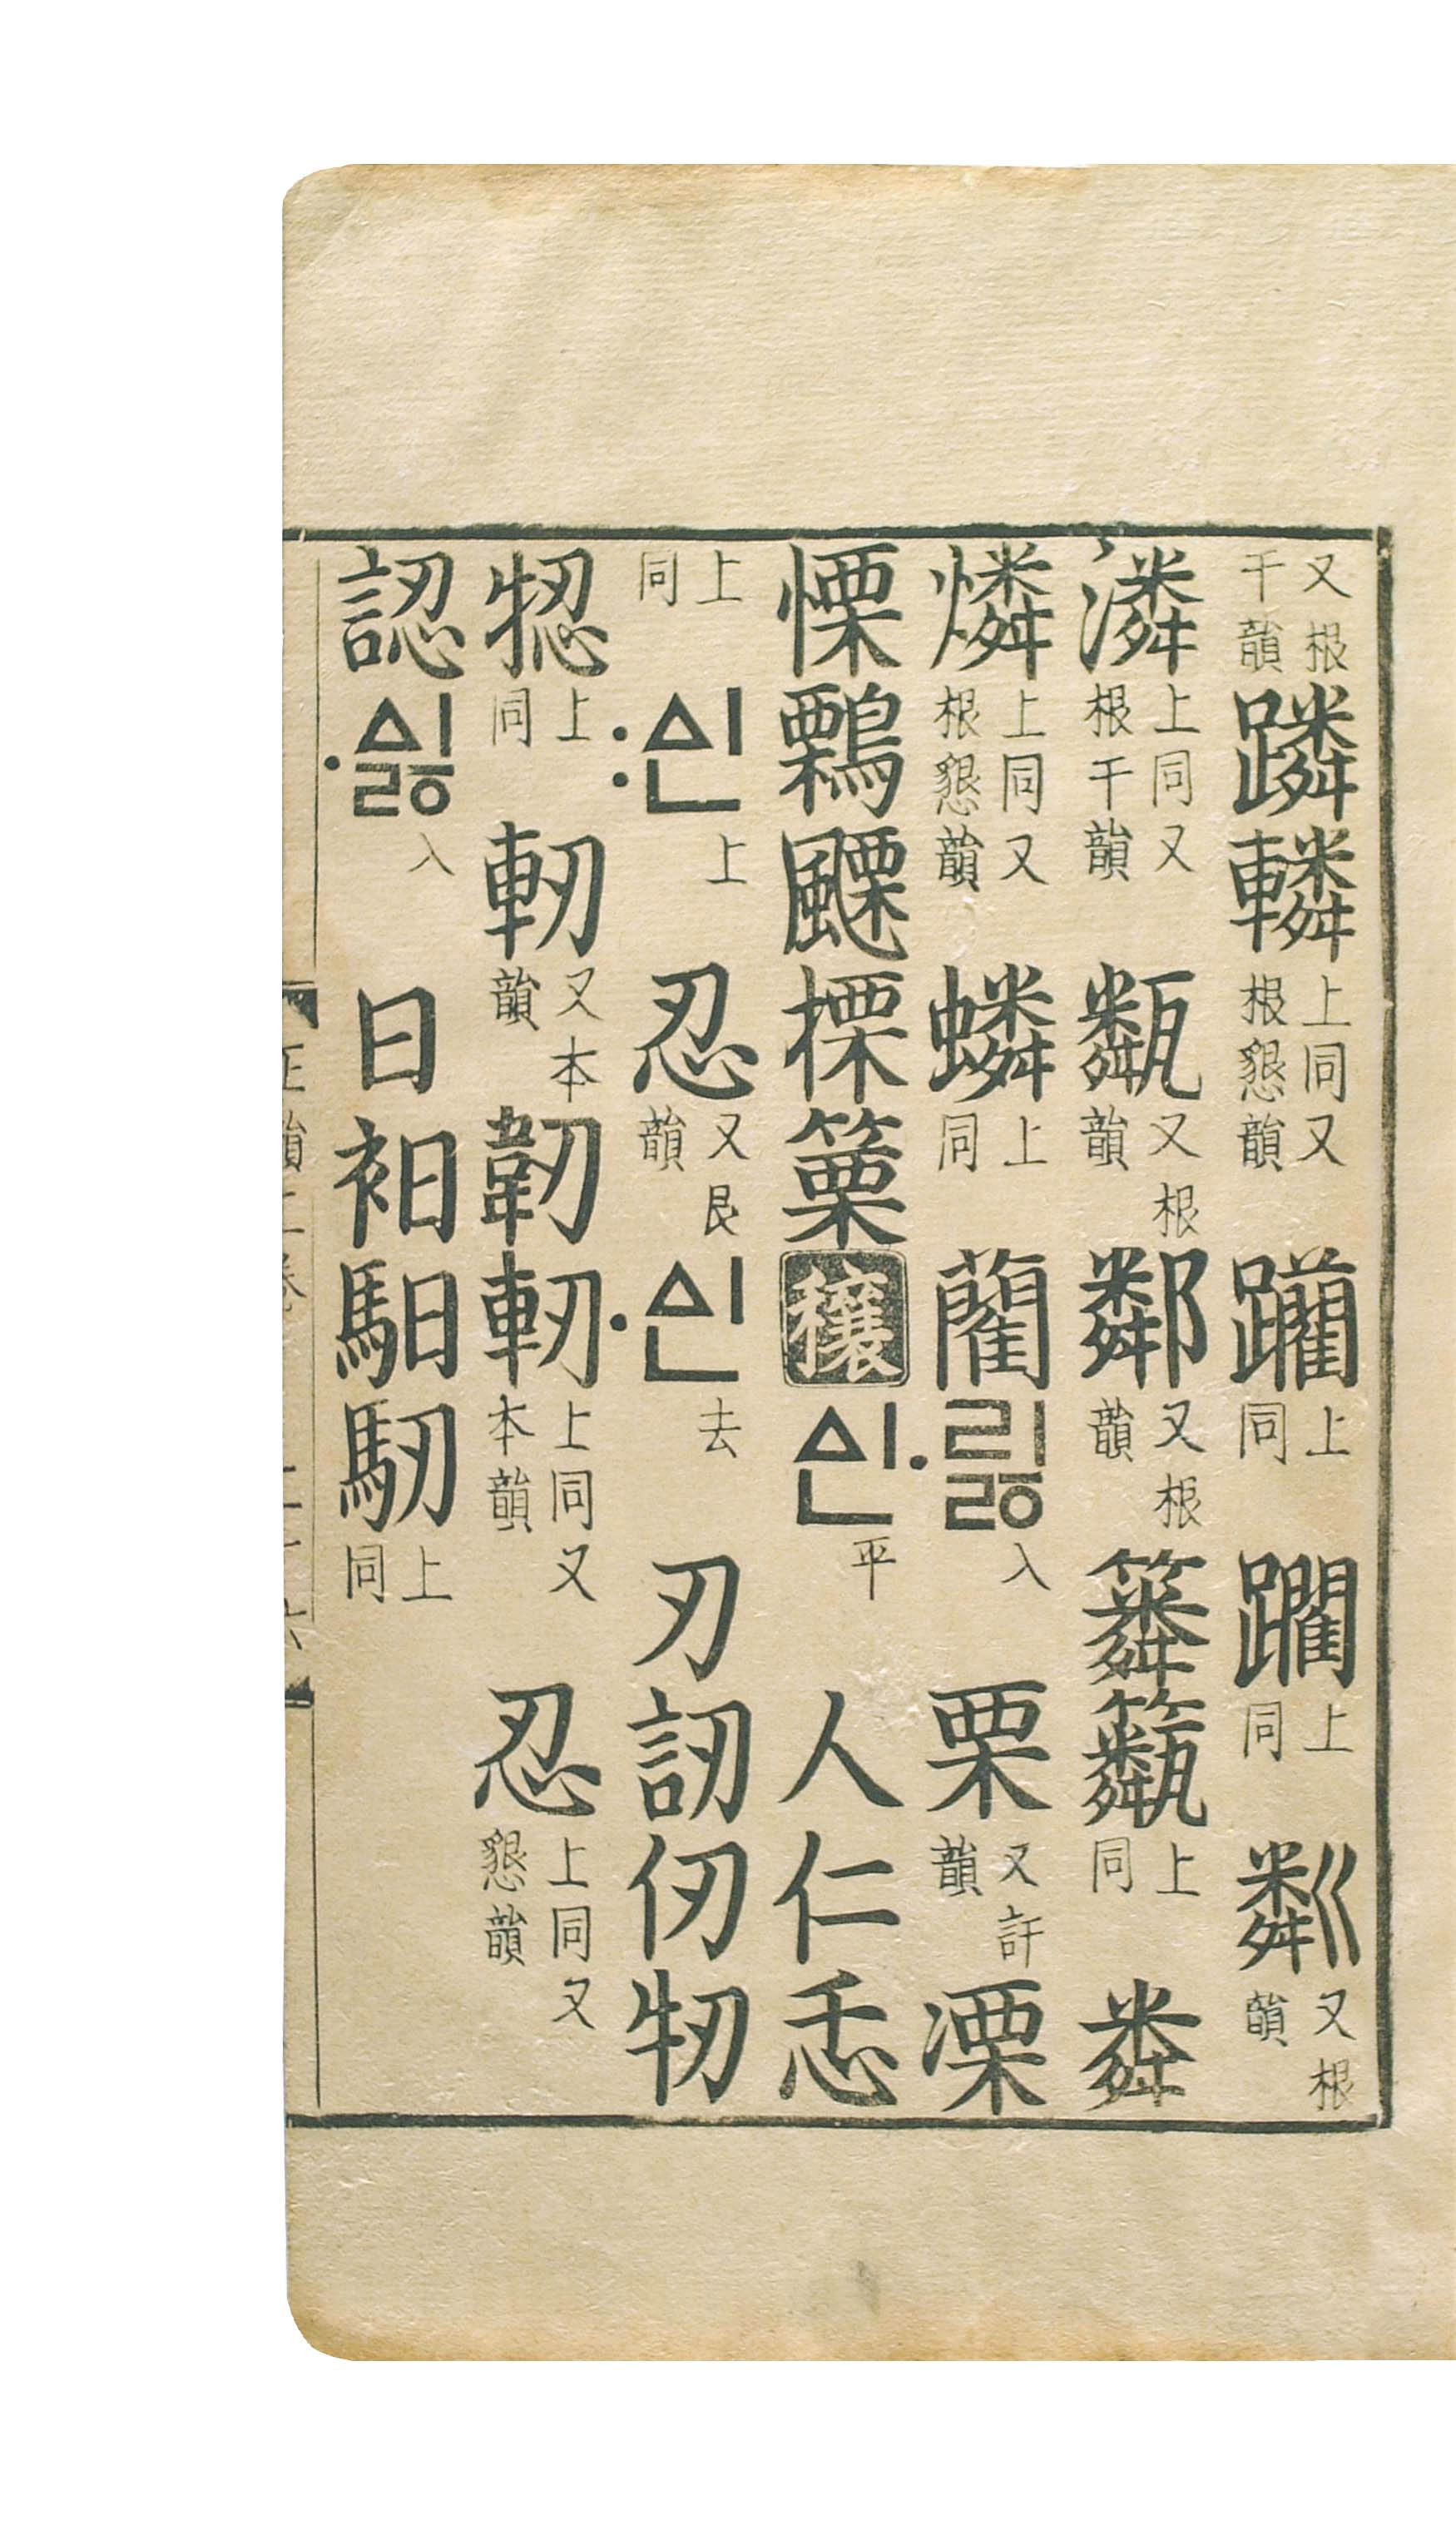 又根干韻蹸轔上同又根懇韻躪上同躙上同粼又根韻
潾上同又根干韻甐又根韻鄰又根韻上同粦
燐上同又根懇韻上同藺〮리ᇙ入栗又訐韻凓
慄鷅篥穰ᅀᅵᆫ平人仁忎
上同〯ᅀᅵᆫ上忍又艮韻〮ᅀᅵᆫ去刃訒仞牣
上同軔又本韻韌軔上同又本韻忍上同又懇韻
認〮ᅀᅵᇙ入日衵馹上同